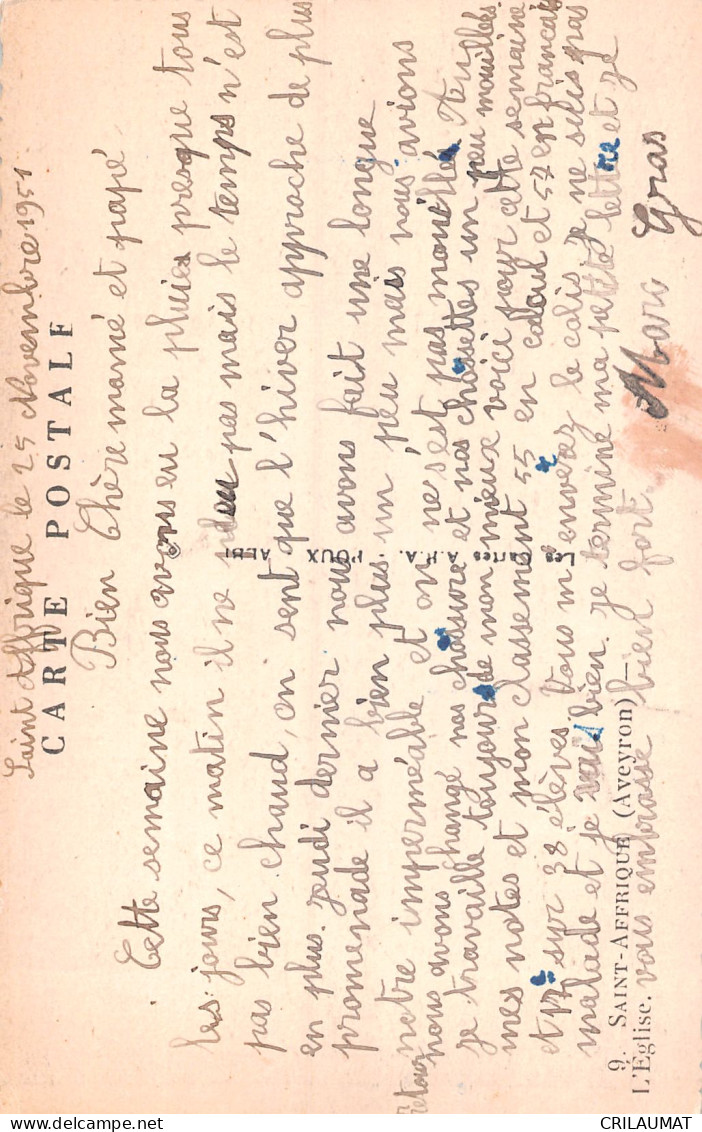 Saint Affrique le 25 Novembre 1951
CARTE POSTALE
Bien Chère mamé et papé
Cette semaine nous avons eu la pluie presque tous
les jours, ce matin il ne pleu pas mais le temps n'est
pas bien chaud, on sent que l'hiver approche de plus
en plus. Jeudi dernier nous avons fait une longue
promenade il a bien plus un peu mais nous avions
notre imperméable et on ne s'est pas mouillés. Au
Retour nous avons changé nos chausure et nos chossettes un peu mouillées.
je travaille toujours de mon mieux voici pour cette semaine
mes notes et mon classement 55 en calcul et 57 en français
et 17è sur 38 élèves. Vous m'enverez le colis je ne suis pas
malade et je vais bien. Je termine ma petite lettre et je
vous embrasse bien fort.
Marc Gras
Les Cartes A.P.A. - POUX ALBI
9. SAINT-AFFRIQUE (Aveyron)
L'Église.
CRILAUMAT